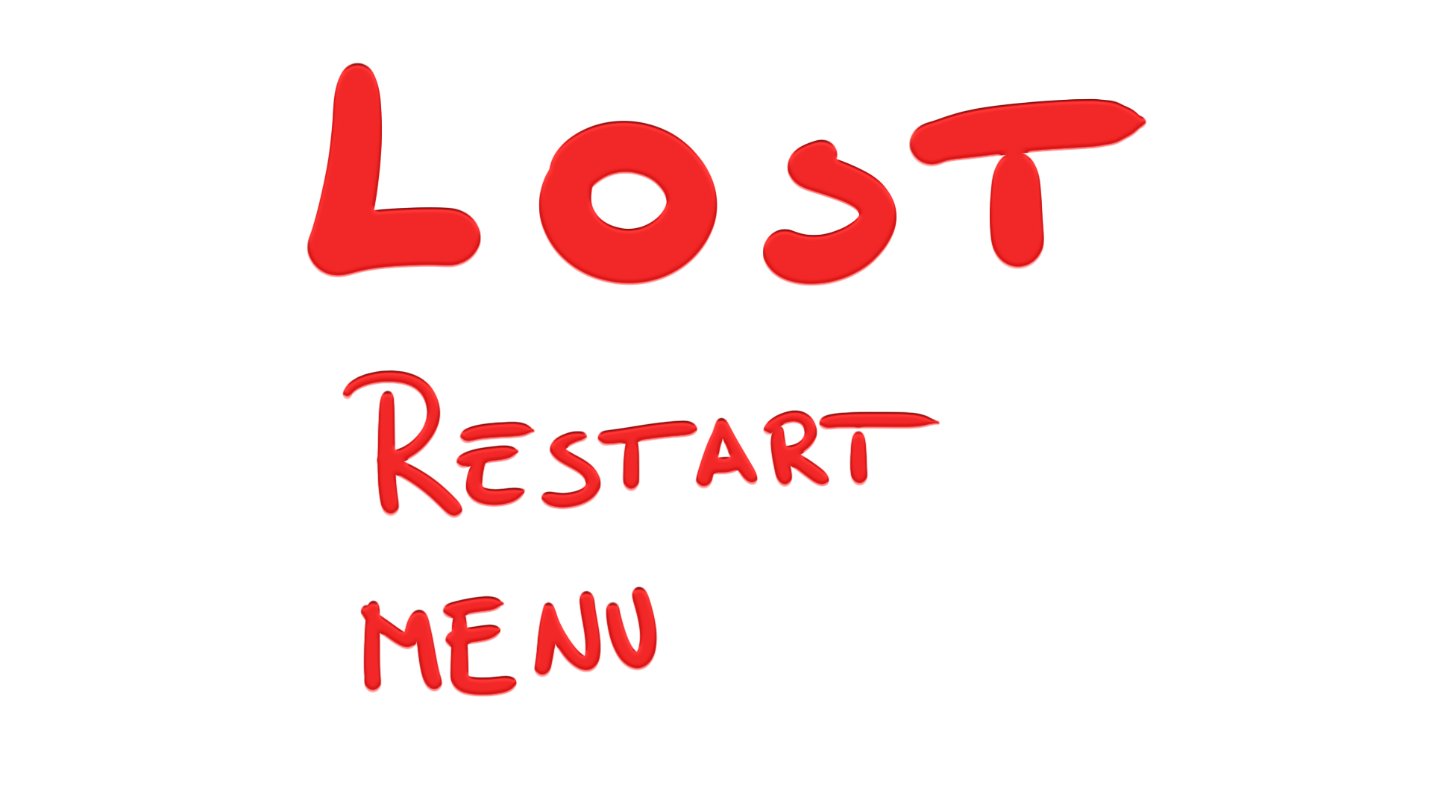 LOST
RESTART
MENU